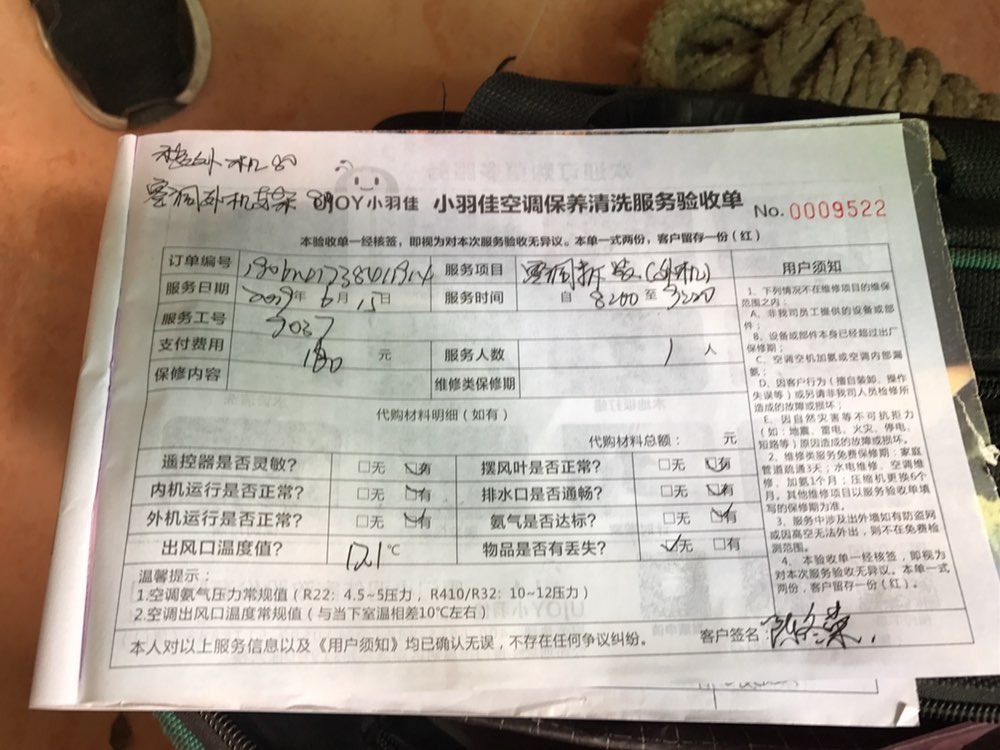 UJOY小羽佳 小羽佳空调保养清洗服务验收单 No. 0009522
本验收单一经核签，即视为对本次服务验收无异议。本单一式两份，客户留存一份（红）
订单编号 服务项目 空调拆装(外机)
服务日期 2019年6月15日 服务时间 自 至
服务工号 3037
支付费用 180 元 服务人数 1 人
保修内容 维修类保修期
代购材料明细（如有）
代购材料总额： 元
遥控器是否灵敏？ □无 □有 摆风叶是否正常？ □无 □有
内机运行是否正常？ □无 □有 排水口是否通畅？ □无 □有
外机运行是否正常？ □无 □有 氨气是否达标？ □无 □有
出风口温度值？ 121 ℃ 物品是否有丢失？ □无 □有
温馨提示：
1.空调氨气压力常规值（R22：4.5~5压力，R410/R32：10~12压力）
2.空调出风口温度常规值（与当下室温相差10℃左右）
本人对以上服务信息以及《用户须知》均已确认无误，不存在任何争议纠纷。 客户签名：
用户须知
1、下列情况不在维修项目的维保
范围之内：
A、非我司员工提供的设备或部
件；
B、设备或部件本身已经超过出厂
保修期；
C、空调空机加氨或空调内部漏
氨；
D、因客户行为（擅自装卸、操作
失误等）或另请非我司人员检修所
造成的故障或损坏；
E、因自然灾害等不可机拒力
（如：地震、雷电、火灾、停电、
短路等）原因造成的故障或损坏。
2、维修类服务免费保修期：家庭
管道疏通3天；水电维修、空调维
修、加氨1个月；压缩机更换6个
月。其他维修项目以服务验收单填
写的保修期为准。
3、服务中涉及出外墙如有防盗网
或因高空无法外出，则不在免费检
测范围。
4、本验收单一经核签，即视为
对本次服务验收无异议。本单一式
两份，客户留存一份（红）。